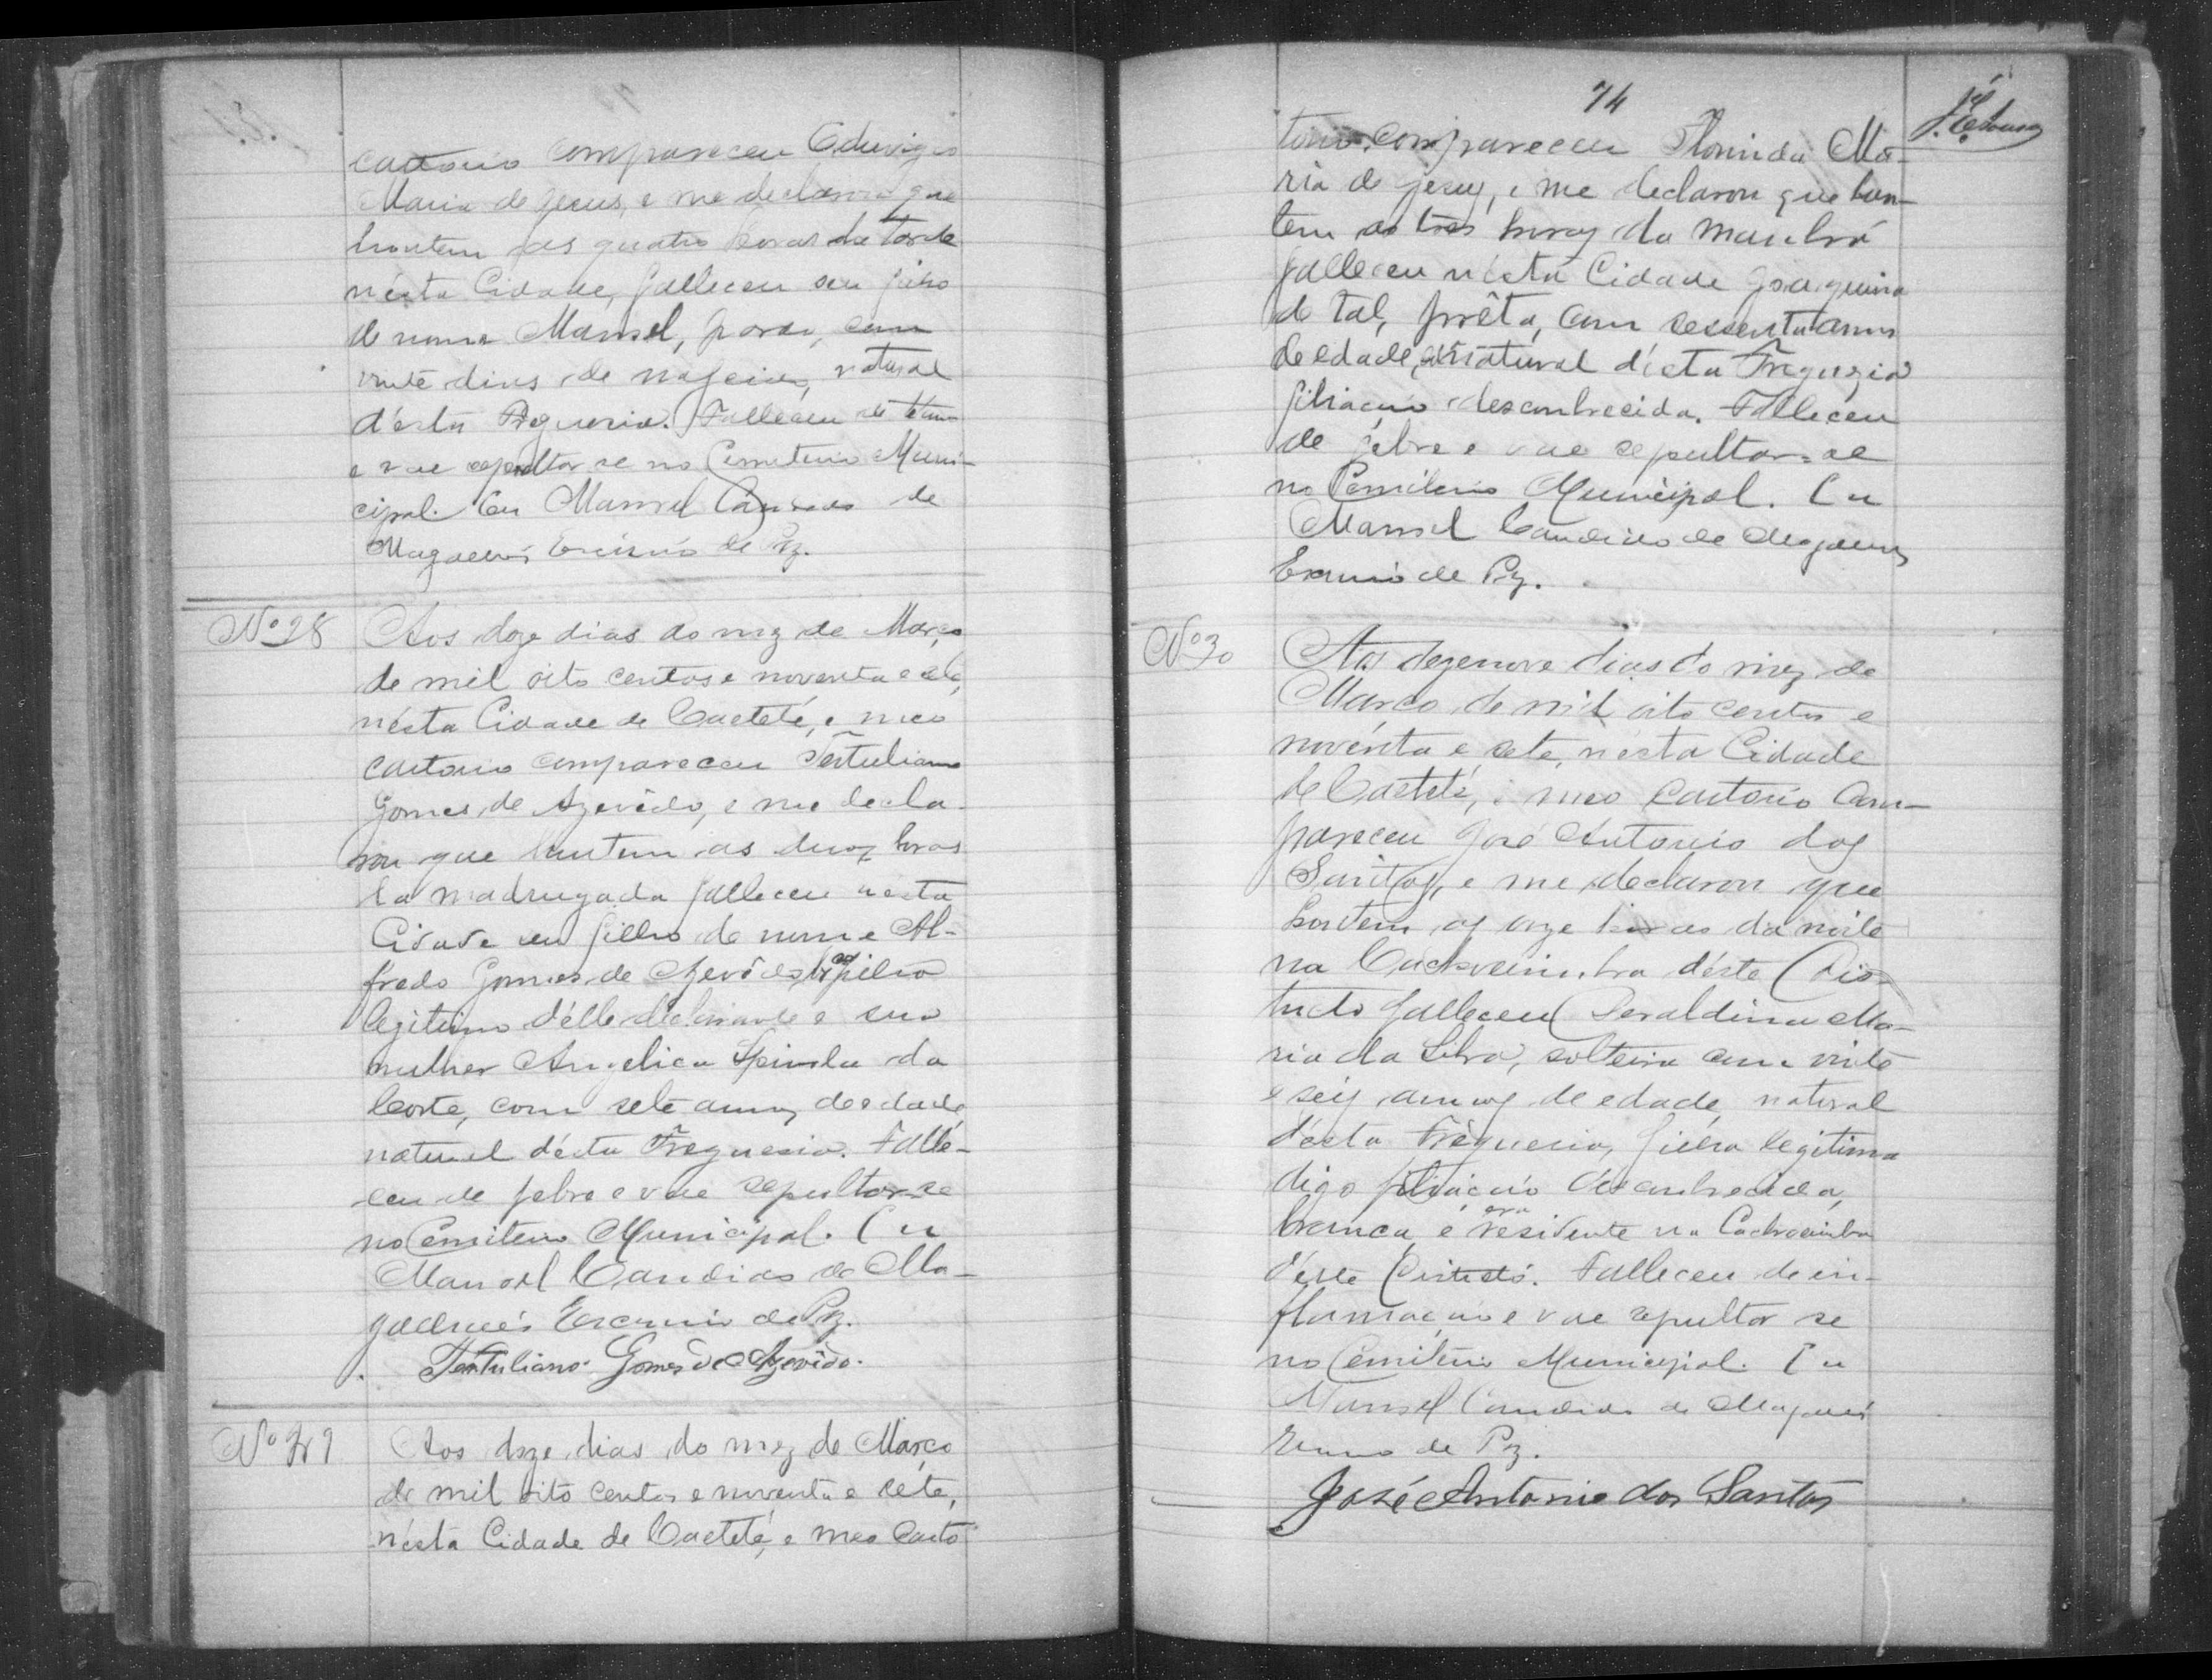 cartorio compareceu Eduviges
Maria de Jesus, e me declarou que
hontem as quatro horas da tarde
nésta Cidade, falleceu seu filho
de nome Manoel, pardo, com
vinte dias de nascido, natural
d'ésta Freguesia. Falleceu de
e vae sepultar se no Cemiterio Muni-
cipal. Eu Manoel Candido de
Magalhães Escrivão de Pz.
Nº 28
Aos doze dias do mez de Março
de mil oito centos e noventa e sete,
nésta Cidade de Caeteté, e meo
cartorio compareceu Tertuliano
Gomes de Azevêdo, e me decla-
rou que hontem as duaz horas
da madrugada falleceu nesta
Cidade seu filho de nome Al-
fredo Gomes de Azevêdo, filho
legitimo d'élle declarante e sua
mulher Angelica Spinola da
Costa, com sete annos de edade,
natural désta Freguesia. Falle-
ceu de febre e vae sepultar-se
no Cemiterio Municipal. Eu
Manoel Candido de Ma-
galhães Escrivão de Pz.
Tertuliano Gomes de Azevêdo.
Nº 29
Aos doze dias do mez de Março
de mil oito centos e noventa e séte,
nésta Cidade de Caeteté, e meo Carto
74
torio compareceu Florinda Ma-
ria de Jesus, e me declarou que hon-
tem as tres horas da manhã
falleceu nésta Cidade Joaquina
de tal, prêta, com sessenta annos
de edade, natural d'ésta Freguezia
filiação desconhecida. Falleceu
de febre e vae sepultar-se
no Cemiterio Municipal. Eu
Manoel Candido de Magalhães
Escrivão de Pz.
Nº 30
Aos dezenove dias do mez de
Março de mil oito centos e
novénta e sete, nésta Cidade
de Caeteté, e meo Cartorio com-
pareceu José Antonio dos
Santos, e me declarou que
hontem as onze horas da noite
na Cachoeirinha déste Dis-
tricto falleceu Geraldina Ma-
ria da Silva, solteira com vinte
e seis annos de edade, natural
d'ésta Freguesia, filha legitima
digo filiação desconhecida,
branca, e era residente na Cachoeirinha
d'éste Districto. Falleceu de in-
flamação e vae sepultar se
no Cemiterio Municipal. Eu
Manoel Candido de Magalhães
Escrivão de Pz.
José Antonio dos Santos